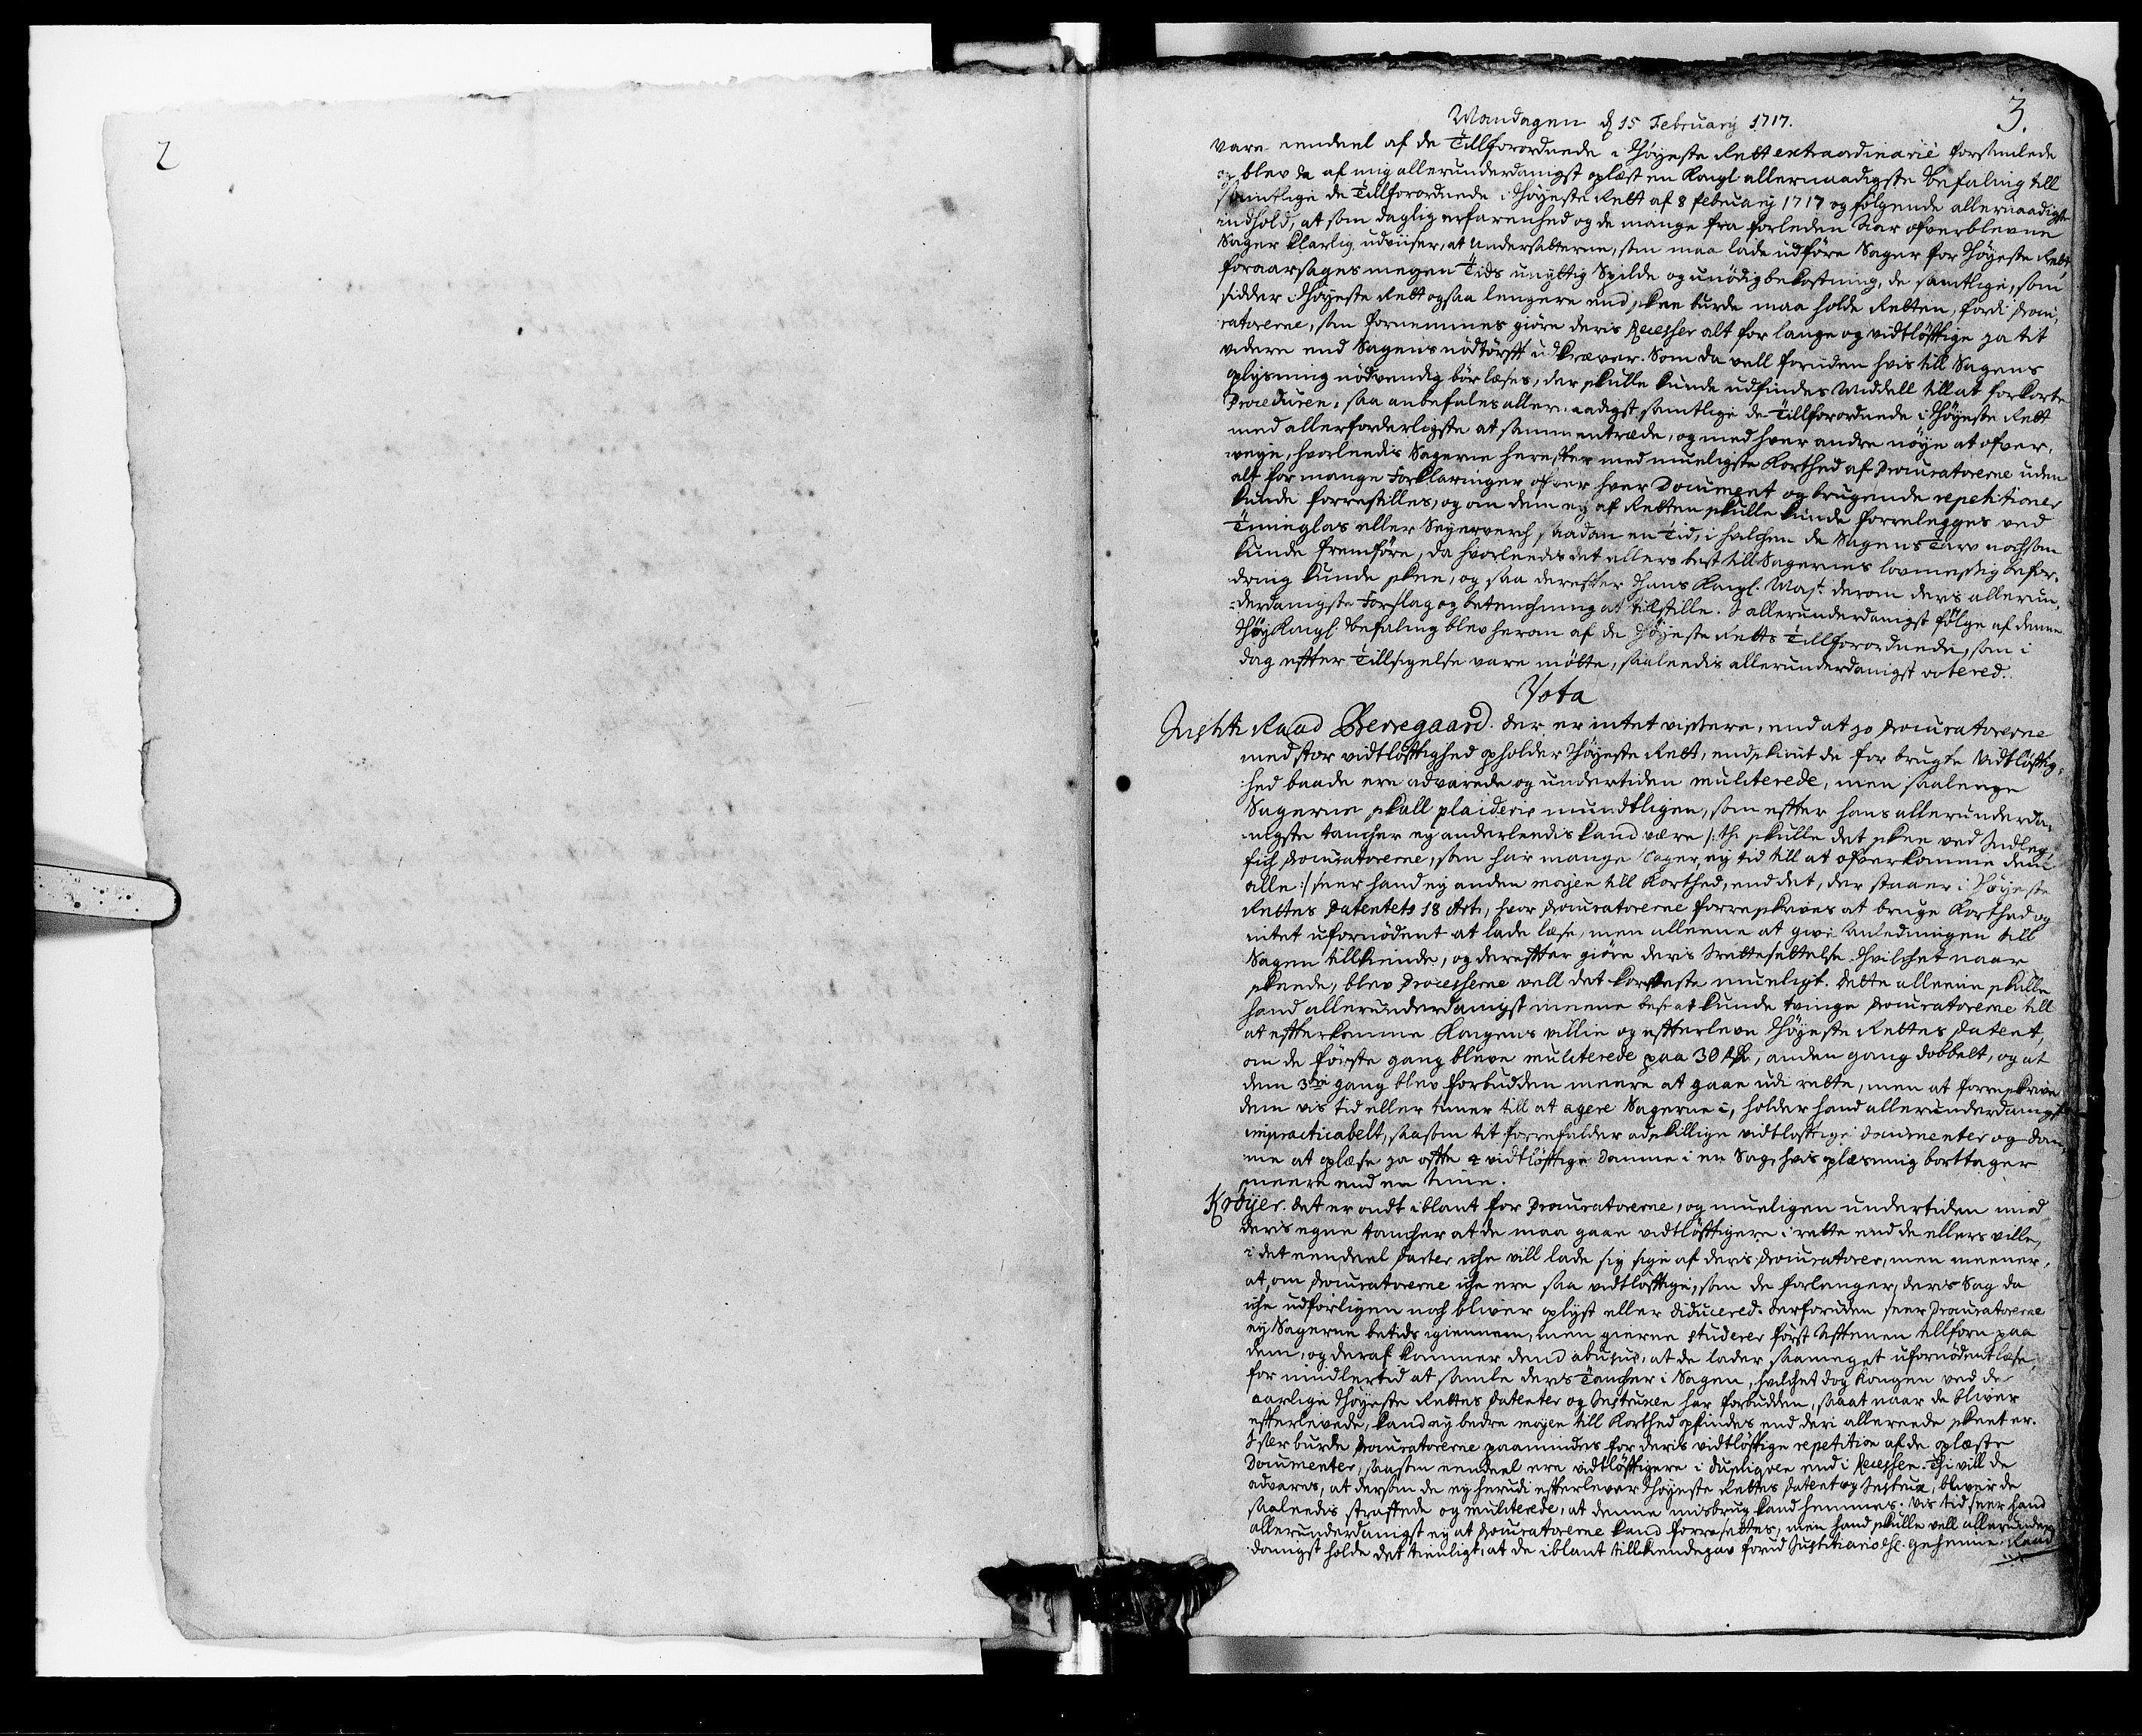 2
3.
Mandagen d 15 February 1717.
vare eendeel af de Tillforordnede i Høyeste Rett extraordinariè forsamlede
og blev da af mig allerunderdanigst oplæst en Kongl allernaadigste befaling till
samtlige de Tillforordnede i Høyeste Rett af 8 februarij 1717 og følgende allernaadigste
indhold, at som daglig erfarenhed og de mange fra forleden Aar ofverblevne
Sager klarlig udviiser, at Undersatterne, som maa lade udføre Sager for Høyeste Rett,
foraarsages megen Tids unyttig Spilde og unödig bekostning, de samtlige, som
sidder i Høyeste Rett ogsaa lengere end skee burde maa holde Retten, fordi Procu,
ratorerne, som fornemmes giöre deris Recesser alt for lange og vidtlöftige ja tit
videre end Sagens nödtörft udkræver. Som da vell foruden hvis till Sagens
oplysning nödvendig bör læses, der skulle kunde udfindes Middell till at forkorte
Proceduren, saa anbefales allernaadigst samtlige de Tillforordnede i Høyeste Rett
med allerforderligste at sammentræde, og med hver andre nöye at ofver,
veye, hvorleedis Sagerne herefter med mueligste Korthed af Procuratorerne uden
alt for mange Forklaringer ofver hver Document og brugende repetitioner
kunde forrestilles, og om dem ey af Retten skulle kunde forrelegges ved
Timeglas eller Seyerverch saadan en Tid, i hvilchen de Sagens Tarv nochsom
kunde fremföre, da hvorleedis det ellers best till Sagernes lovmessig befor,
dring kunde skee, og saa derefter Hans Kongl. May.t derom deris allerun,
derdanigste Forslag og betenchning at tilstille. I allerunderdanigst fölge af denne
Høy Kongl. befaling blev herom af de Høyeste Retts Tillforordnede, som i
dag efter Tillsigelse vare mötte, saaleedis allerunderdanigst votered.
Vota
Justitz Raad Benegaard. der er intet vissere, end at jo Procuratorerne
med stor vidtlöftighed opholder Høyeste Rett, endskiönt de for brugte Vidtlöftig,
hed baade ere advarede og undertiden mulcterede, men saalenge
Sagerne skall plaideris mundtligen, som efter hans allerunderda,
nigste tancher ey anderleedis kand være /: thi skulle det skee ved Indleg,
fich Procuratorerne, som har mange Sager, ey tid till at ofverkomme dem
alle :/ seer hand ey anden moyen till Korthed, end det, der staaer i Høyeste
Rettes Patentets 18 Art, hvor Procuratorerne forreskrives at bruge Korthed og
intet ufornödent at lade læse, men alleene at give Anledningen till
Sagen tillkiende, og derefter giöre deris Irettesettelse. Hvilchet naar
skeede, blev Processerne vell det korteste mueligt. Dette alleene skulle
hand allerunderdanigst meene best at kunde tvinge Procuratorerne till
at efterkomme Kongens villie og efterleve Høyeste Rettes Patent,
om de förste gang bleve mulcterede paa 30 Rdr, anden gang dobbelt, og at
dem 3die gang blev forbudden meere at gaae udi rette, men at forreskrive
dem vis tid eller timer till at agere Sagerne i, holder hand allerunderdanigst
impracticabelt, saasom tit forrefalder adskillige vidtlöftige documenter og dom,
me at oplæse ja ofte 4 vidtlöftige Domme i en Sag, hvis oplæsning borttager
meere end en time.
Kröyer. det er ondt iblant for Procuratorerne, og mueligen undertiden imod
deris egne tancher at de maa gaae vidtlöftigere i rette end de ellers ville,
i det eendeel Parter iche vill lade sig sige af deris Procuratorer, men meener,
at, om Procuratorerne iche ere saa vidtlöftige, som de forlanger, deris Sag da
iche udförligen noch bliver oplyst eller diducered. Derforuden seer Procuratorerne
ey Sagerne betids igiennem, men gierne studerer först Aftenen tillforn paa
dem, og deraf kommer dend abusus, at de lader saameget ufornödent læse,
for imidlertid at samle deris Tancher i Sagen, hvilchet dog Kongen ved de
aarlige Høyeste Rettes Patenter og Instruxen har forbudden, saa at naar de bliver
efterlevede, kand ey bedre moyen till Korthed opfindes end deri allereede skeet er.
Ister burde Procuratorerne paamindes for deris vidtlöftige repetition af de oplæste
Documenter, saasom eendeel ere vidtlöftigere i dupliqven end i Recessen. Thi vill de
advares, at dersom de ey herudi efterlever Høyeste Rettes Patent og Instrux, bliver de
saaleedis straffede og mulcterede, at denne misbrug kand hemmes. Vis tid seer hand
allerunderdanigst ey at Procuratorerne kand forresettes, men hand skulle vell allerunder
danigst holde det tienligt, at de iblant tillkiendegav forud Justitiario Hr. geheime Raad